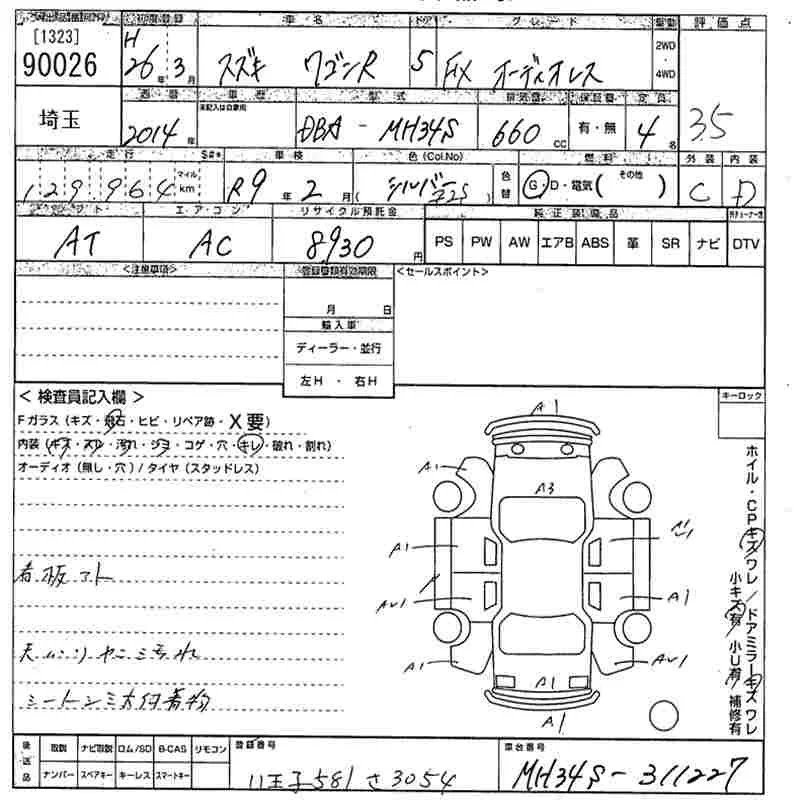 [1323] 初度登録 車名 ドア グレード 駆動 評価点
90026 H26年3月 スズキ ワゴンR 5 FX オーディオレス 2WD・4WD 3.5
埼玉 西暦 車歴 型式 排気量 保証書 定員
2014年 未記入は自家用 DBA-MH34S 660cc 有・無 4名
走行 S#* 車検 色(Col.No) 色替 燃料 外装 内装
129964 マイル km R9年2月 (シルバー Z2S) G・D・電気( その他 ) C D
シフト エアコン リサイクル預託金 純正装備品
AT AC 8930円 PS PW AW エアB ABS 革 SR ナビ DTV
<注意事項> 登録書類有効期限 <セールスポイント>
月 日
輸入車
ディーラー・並行
左H ・ 右H
<検査員記入欄> キーロック
Fガラス(キズ・飛石・ヒビ・リペア跡・X要)
内装(キズ・スレ・汚れ・シミ・コゲ・穴・キレ・破れ・割れ)
オーディオ(無し・穴)/タイヤ(スタッドレス)
看板アト
天ムシリヤニ汚れ
シートシミ大付着物
A1
A1
A3
A1
AU1 A1
A1 A1 AU1
A1
ホイル・CPキズワレ/ドアミラーキズワレ
小キズ有/小U有/補修有
後送品 取説 ナビ取説 ロム/SD B-CAS リモコン 登録番号 車台番号
ナンバー スペアキー キーレス スマートキー 八王子581さ3054 MH34S-311227